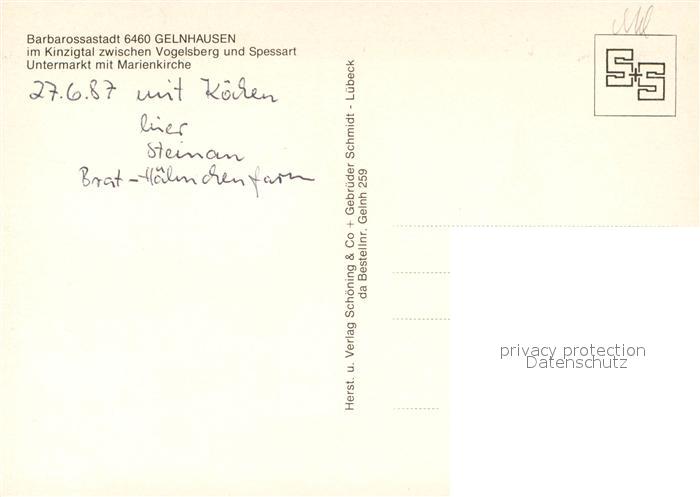 Barbarossastadt 6460 GELNHAUSEN
im Kinzigtal zwischen Vogelsberg und Spessart
Untermarkt mit Marienkirche
27.6.87 mit Köchen
hier
Steinau
Brat-Hähnchenfarm
Herst. u. Verlag Schöning & Co + Gebrüder Schmidt - Lübeck
da Bestellnr. Gelnh 259
S+S
privacy protection
Datenschutz